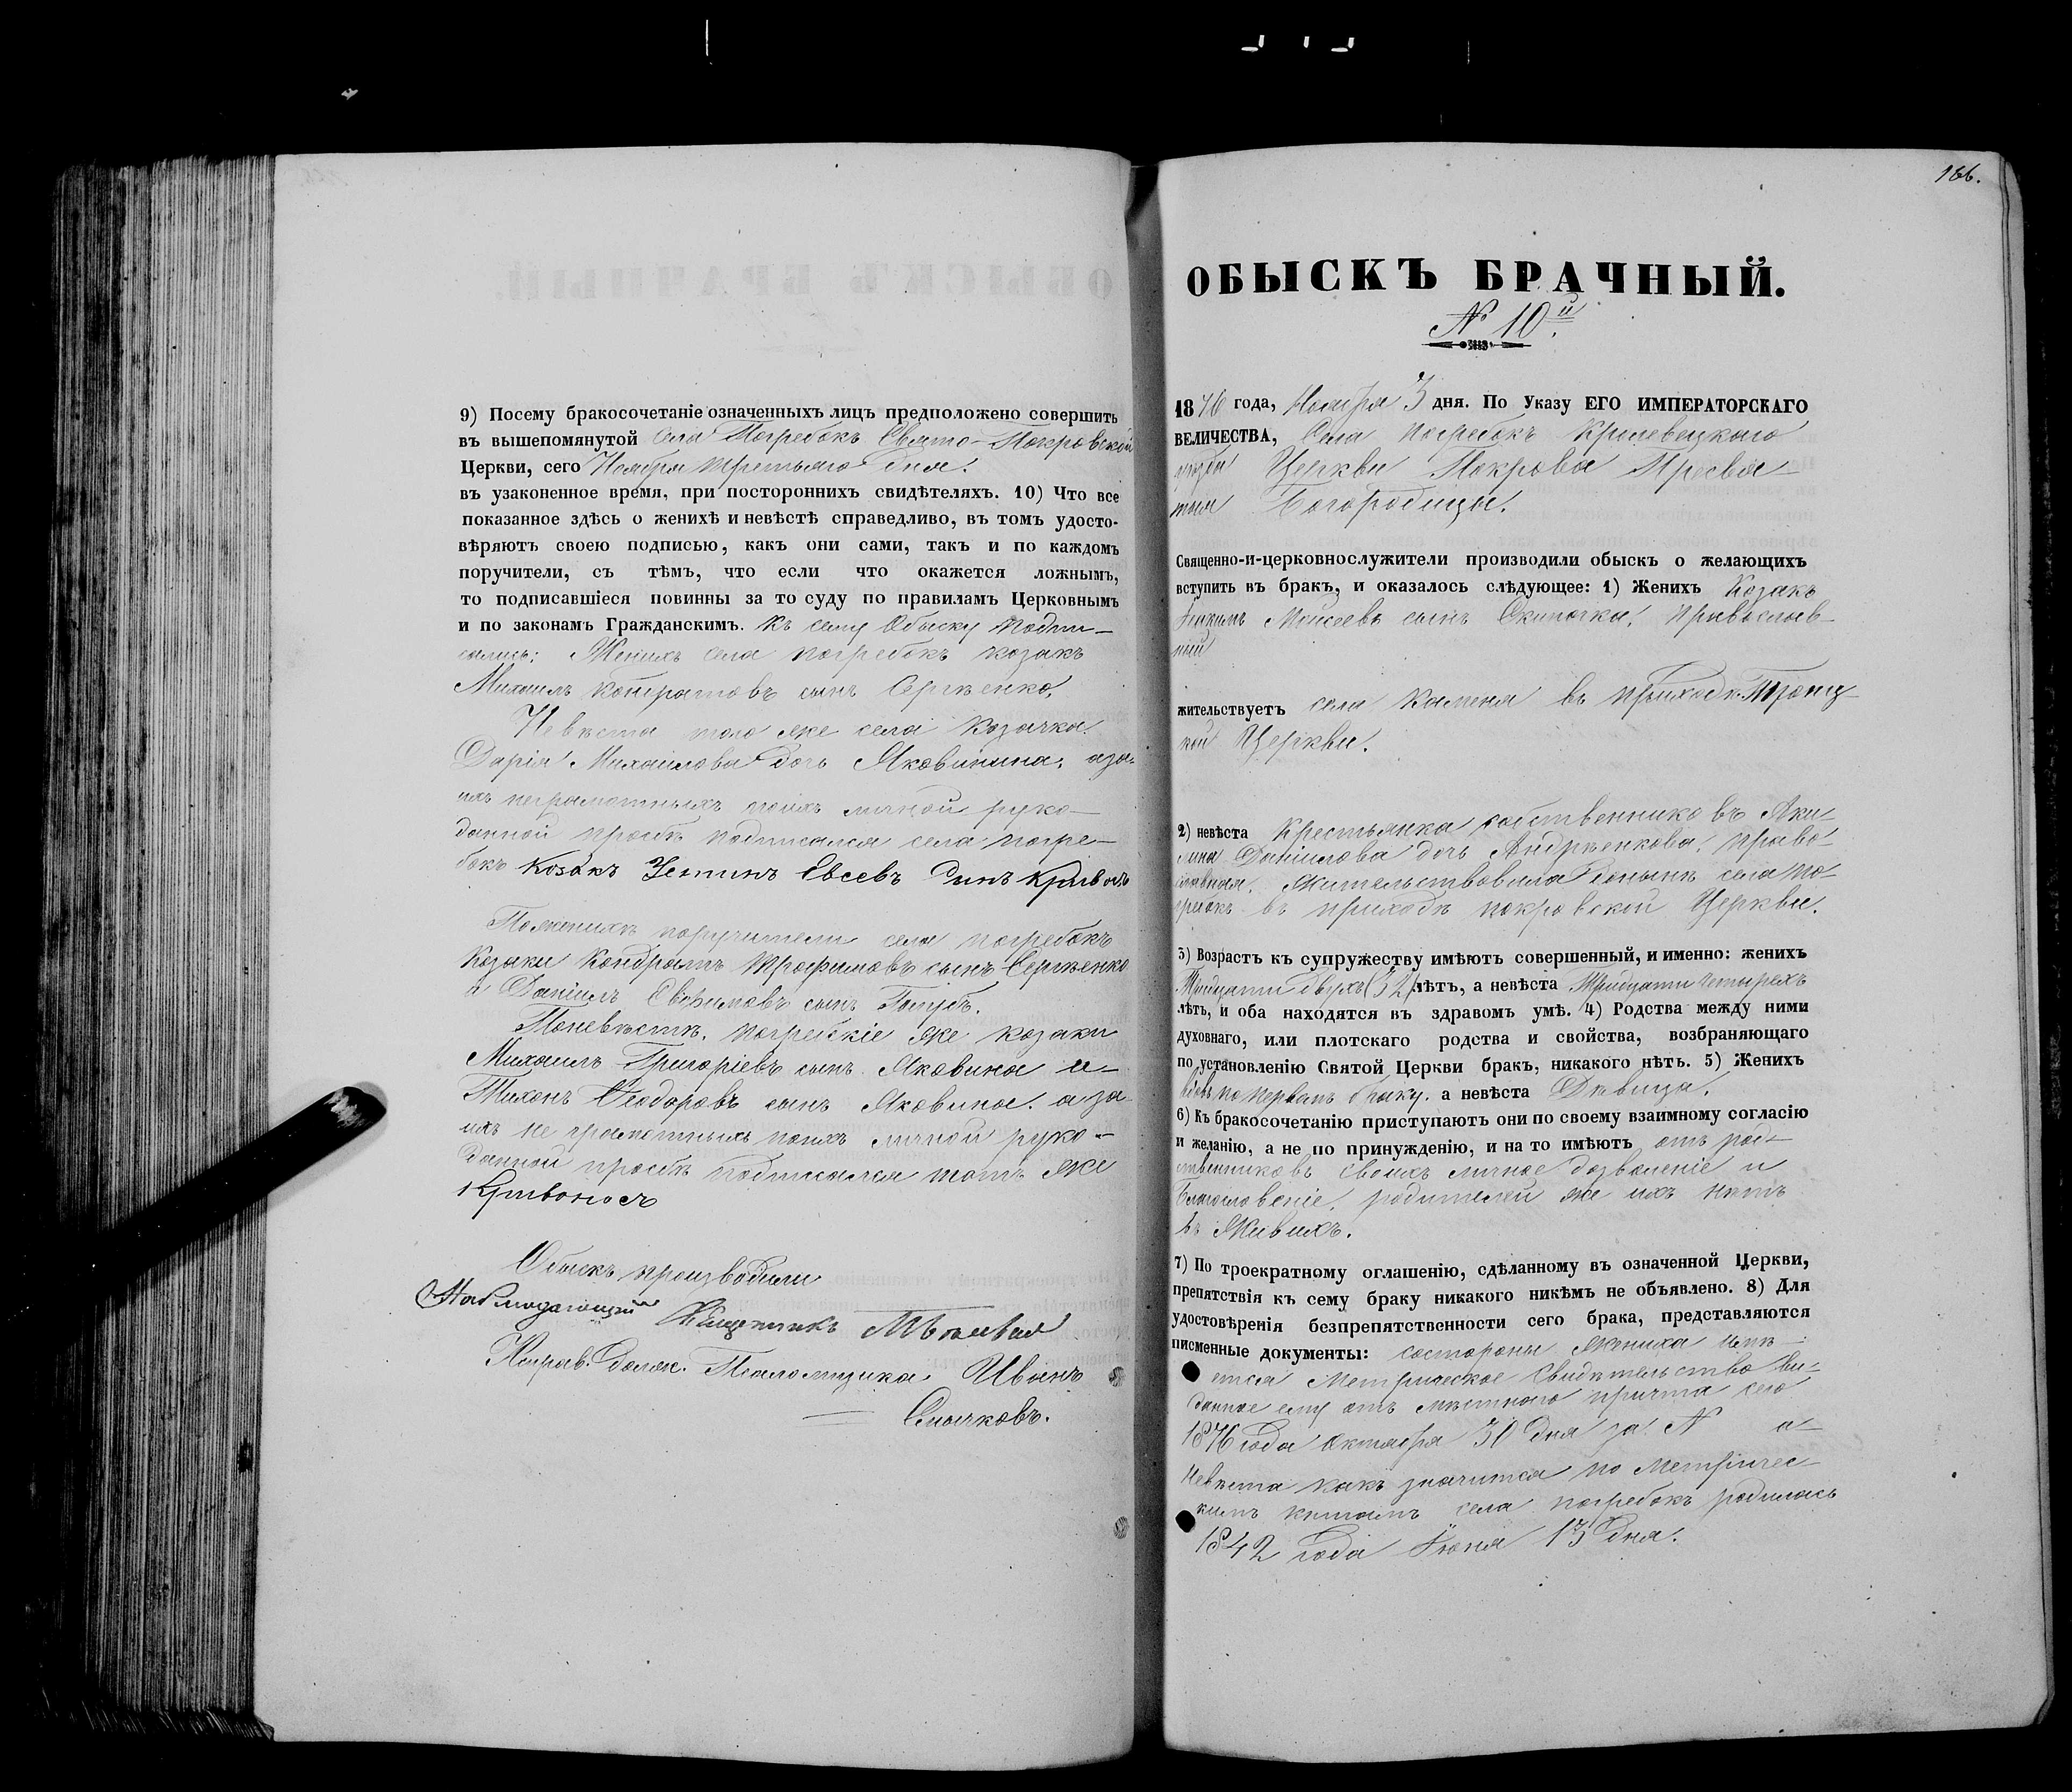 9) Посему бракосочетаніе означенныхъ лицъ предположено совершить
въ вышепомянутой села Погребокъ Свято-Покровской
Церкви, сего Ноября третьяго дня.
въ узаконенное время, при постороннихъ свидѣтеляхъ. 10) Что все
показанное здѣсь о женихѣ и невѣстѣ справедливо, въ томъ удосто-
вѣряютъ своею подписью, какъ они сами, такъ и по каждомъ
поручители, съ тѣмъ, что если что окажется ложнымъ,
то подписавшіеся повинны за то суду по правиламъ Церковнымъ
и по законамъ Гражданскимъ. Къ сему Обыску подпи-
сались: Женихъ села погребокъ козакъ
Михаилъ Контратовъ сынъ Сергѣенко,
Невѣста того же села Козачка
Дарія Михаилова дочь Яковинина, а за-
ихъ неграмотныхъ личной руко-
данной прозбѣ подписался села погре-
бокъ Козакъ Устинъ Евсеевъ Синъ Кривонъ
Поженихѣ поручители села погребокъ
Козаки Кондратъ Трофимовъ сынъ Сергѣенко
и Даніилъ Евфимовъ сынъ Голубъ.
Поневѣстѣ, погребскіе же козаки
Михаилъ Григоріевъ сынъ Яковина и-
Тихонъ Феодоровъ сынъ Яковина. а за-
ихъ не грамотныхъ поихъ личной руко-
данной прозбѣ подписался тотъ же
Кривоносъ
Обыскъ производили
Наблюдающій Священникъ
Исправ. Должн. Псаломщика Иванъ
Смычковъ.
166.
ОБЫСКЪ БРАЧНЫЙ.
№ 10й.
1876 года, Ноября 3 дня. По Указу ЕГО ИМПЕРАТОРСКАГО
ВЕЛИЧЕСТВА, Села погребокъ Кролевецкаго
уѣзда Церкви Покрова Пресвя-
тыя Богородицы.
Священно-и-церковнослужители производили обыскъ о желающихъ
вступить въ бракъ, и оказалось слѣдующее: 1) Женихъ Козакъ
Іоакимъ Моисеевъ сынъ Скипочка, православ-
ный
жительствуетъ села Каменя въ приходѣ Троиц-
кой Церкви.
2) невѣста Крестьянка собственниковъ Аки-
лина Даніилова дочь Андрѣенкова, право-
славная. Жительствовала донынѣ села по-
гребокъ въ приходѣ покровской Церкви.
3) Возрастъ къ супружеству имѣютъ совершенный, и именно: женихъ
Тридцати двухъ (32) лѣтъ, а невѣста Тридцати четырехъ
лѣтъ, и оба находятся въ здравомъ умѣ. 4) Родства между ними
духовнаго, или плотскаго родства и свойства, возбраняющаго
по установленію Святой Церкви бракъ, никакого нѣтъ. 5) Женихъ
вдовъ по первомъ браку. а невѣста Дѣвица.
6) Къ бракосочетанію приступаютъ они по своему взаимному согласію
и желанію, а не по принужденію, и на то имѣютъ отъ род-
ственниковъ своихъ личное дозволеніе и
Благословеніе, родителей же ихъ нѣтъ
въ Живихъ.
7) По троекратному оглашенію, сдѣланному въ означенной Церкви,
препятствія къ сему браку никакого никѣмъ не объявлено. 8) Для
удостовѣренія безпрепятственности сего брака, представляются
писменные документы: состороны Жениха имѣ-
ется Метрическое Свидѣтельство ви-
данное ему отъ мѣстного причта сего
1876 года Октября 30 дня за N а-
Невѣста какъ значится по метричес-
кимъ книгамъ села погребокъ родилась
1842 года Іюня 13 дня.